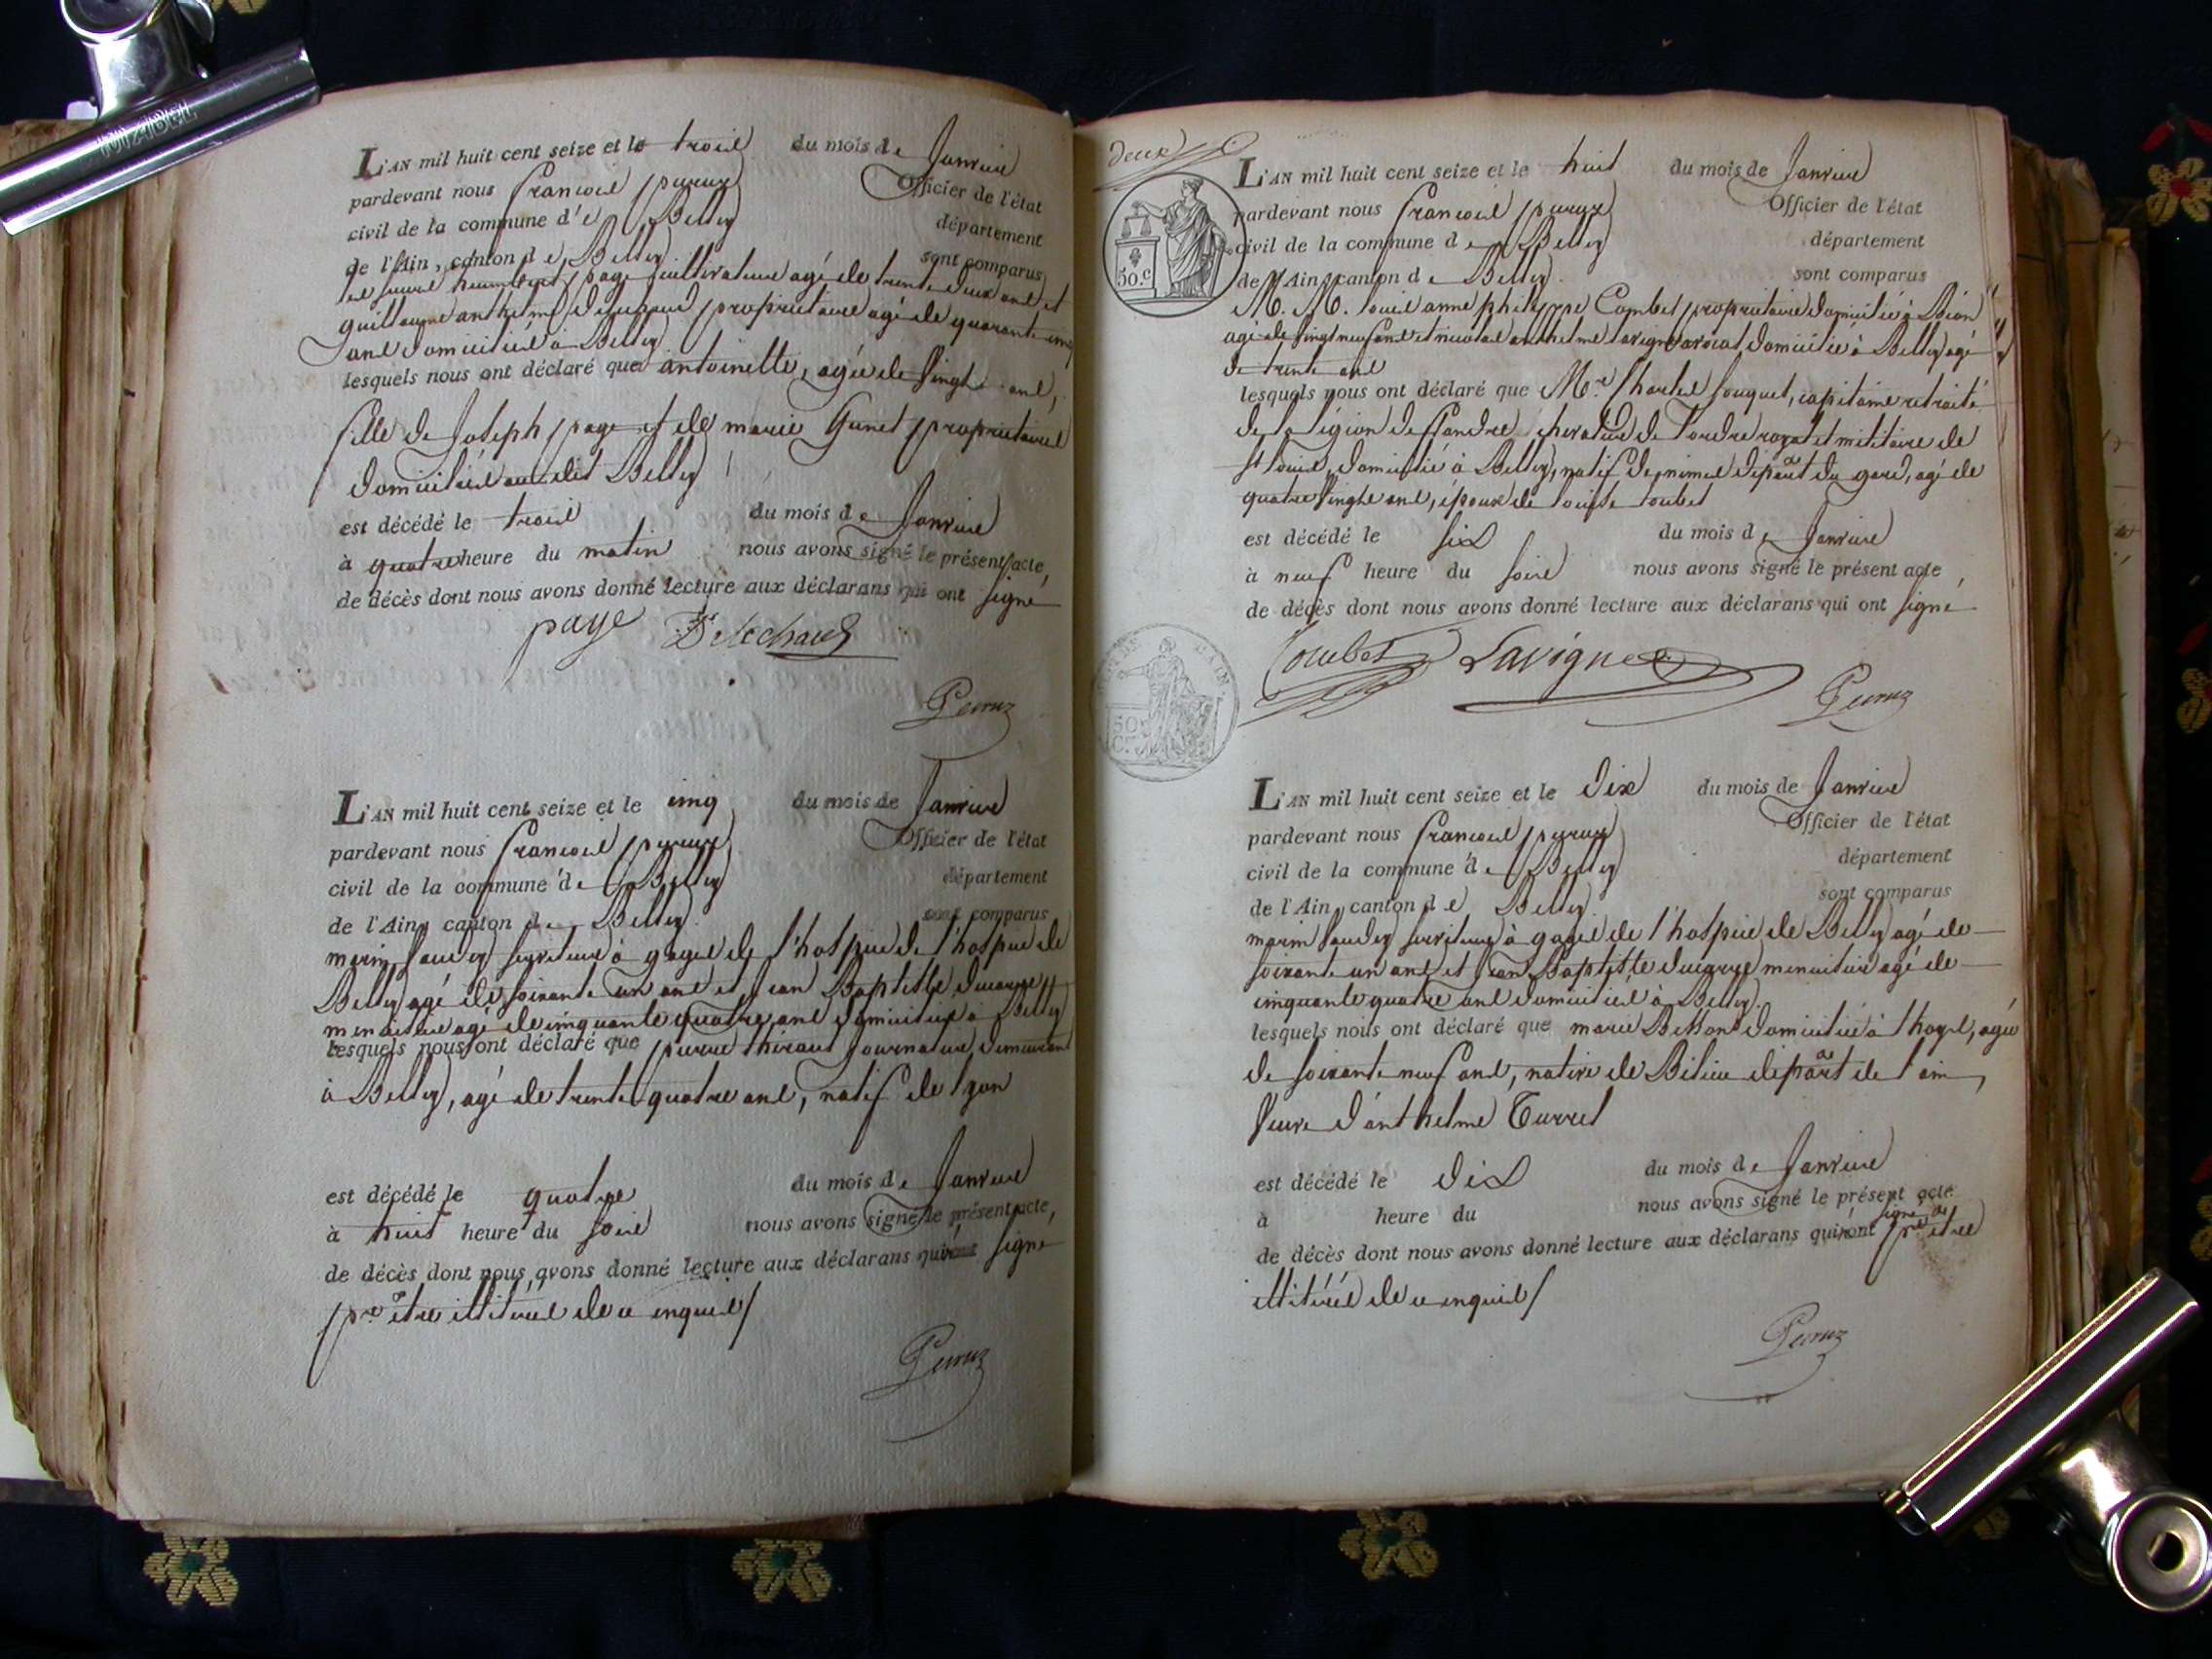 L'AN mil huit cent seize et le trois du mois de Janvier
pardevant nous francois peruz Officier de l'état
civil de la commune d'e Belley département
de l'Ain, canton de Belley sont comparus
les sieurs humbert page cultivateur agé de trente deux ans et
guillaume anthelme Delechaud proprietaire agé de quarante cinq
ans domiciliés à Belley
lesquels nous ont déclaré que antoinette, agée de vingt ans,
fille de Joseph page et de marie Gunet proprietaires
domiciliés audit Belley
est décédé le trois du mois de Janvier
à quatre heure du matin nous avons signé le présent acte,
de décès dont nous avons donné lecture aux déclarans qui ont signé
page Delechaud
Peruz
L'AN mil huit cent seize et le cinq du mois de Janvier
pardevant nous francois peruz Officier de l'état
civil de la commune de Belley département
de l'Ain, canton de Belley sont comparus
marin serviteur à gages de l'hospice de l'hospice de
Belley agé de soixante un ans et Jean Baptiste ducarre
menuisier agé de cinquante quatre ans domiciliés à Belley
lesquels nous ont déclaré que pierre theraut journalier demeurant
à Belley, agé de trente quatre ans, natif de lyon
est décédé le quatre du mois de Janvier
à huit heure du soir nous avons signé le présent acte,
de décès dont nous avons donné lecture aux déclarans qui ont signé
pr etre illitérés de ce enquis
Peruz
deux
50.c
L'AN mil huit cent seize et le huit du mois de Janvier
pardevant nous francois peruz Officier de l'état
civil de la commune de Belley département
de l'Ain, canton de Belley sont comparus
M. M. louis anne philippe Combet proprietaire domicilié à
agé de vingt neuf ans et nicolas anthelme lavigne avocat domicilié à Belley agé
de trente ans
lesquels nous ont déclaré que Mr Charles fouquet, capitaine retraité
de la légion de flandre chevalier de l'ordre royal et militaire de
st louis, domicilié à Belley, natif de nimes départ du gard, agé de
quatre vingts ans, époux de louise
est décédé le six du mois de Janvier
à neuf heure du soir nous avons signé le présent acte,
de décès dont nous avons donné lecture aux déclarans qui ont signé
Combet Lavigne
Peruz
AIN
50
C.
L'AN mil huit cent seize et le dix du mois de Janvier
pardevant nous francois peruz Officier de l'état
civil de la commune de Belley département
de l'Ain, canton de Belley sont comparus
marin serviteur à gages de l'hospice de Belley agé de
soixante un ans et Jean Baptiste ducarre menuisier agé de
cinquante quatre ans domiciliés à Belley
lesquels nous ont déclaré que marie domiciliée à thoys, agée
de soixante neuf ans, native de Bilieu départ de l'ain,
veuve d'anthelme Turrel
est décédé le dix du mois de Janvier
à heure du nous avons signé le présent acte
de décès dont nous avons donné lecture aux déclarans qui ont signé pr etre
illitérés de ce enquis
Peruz